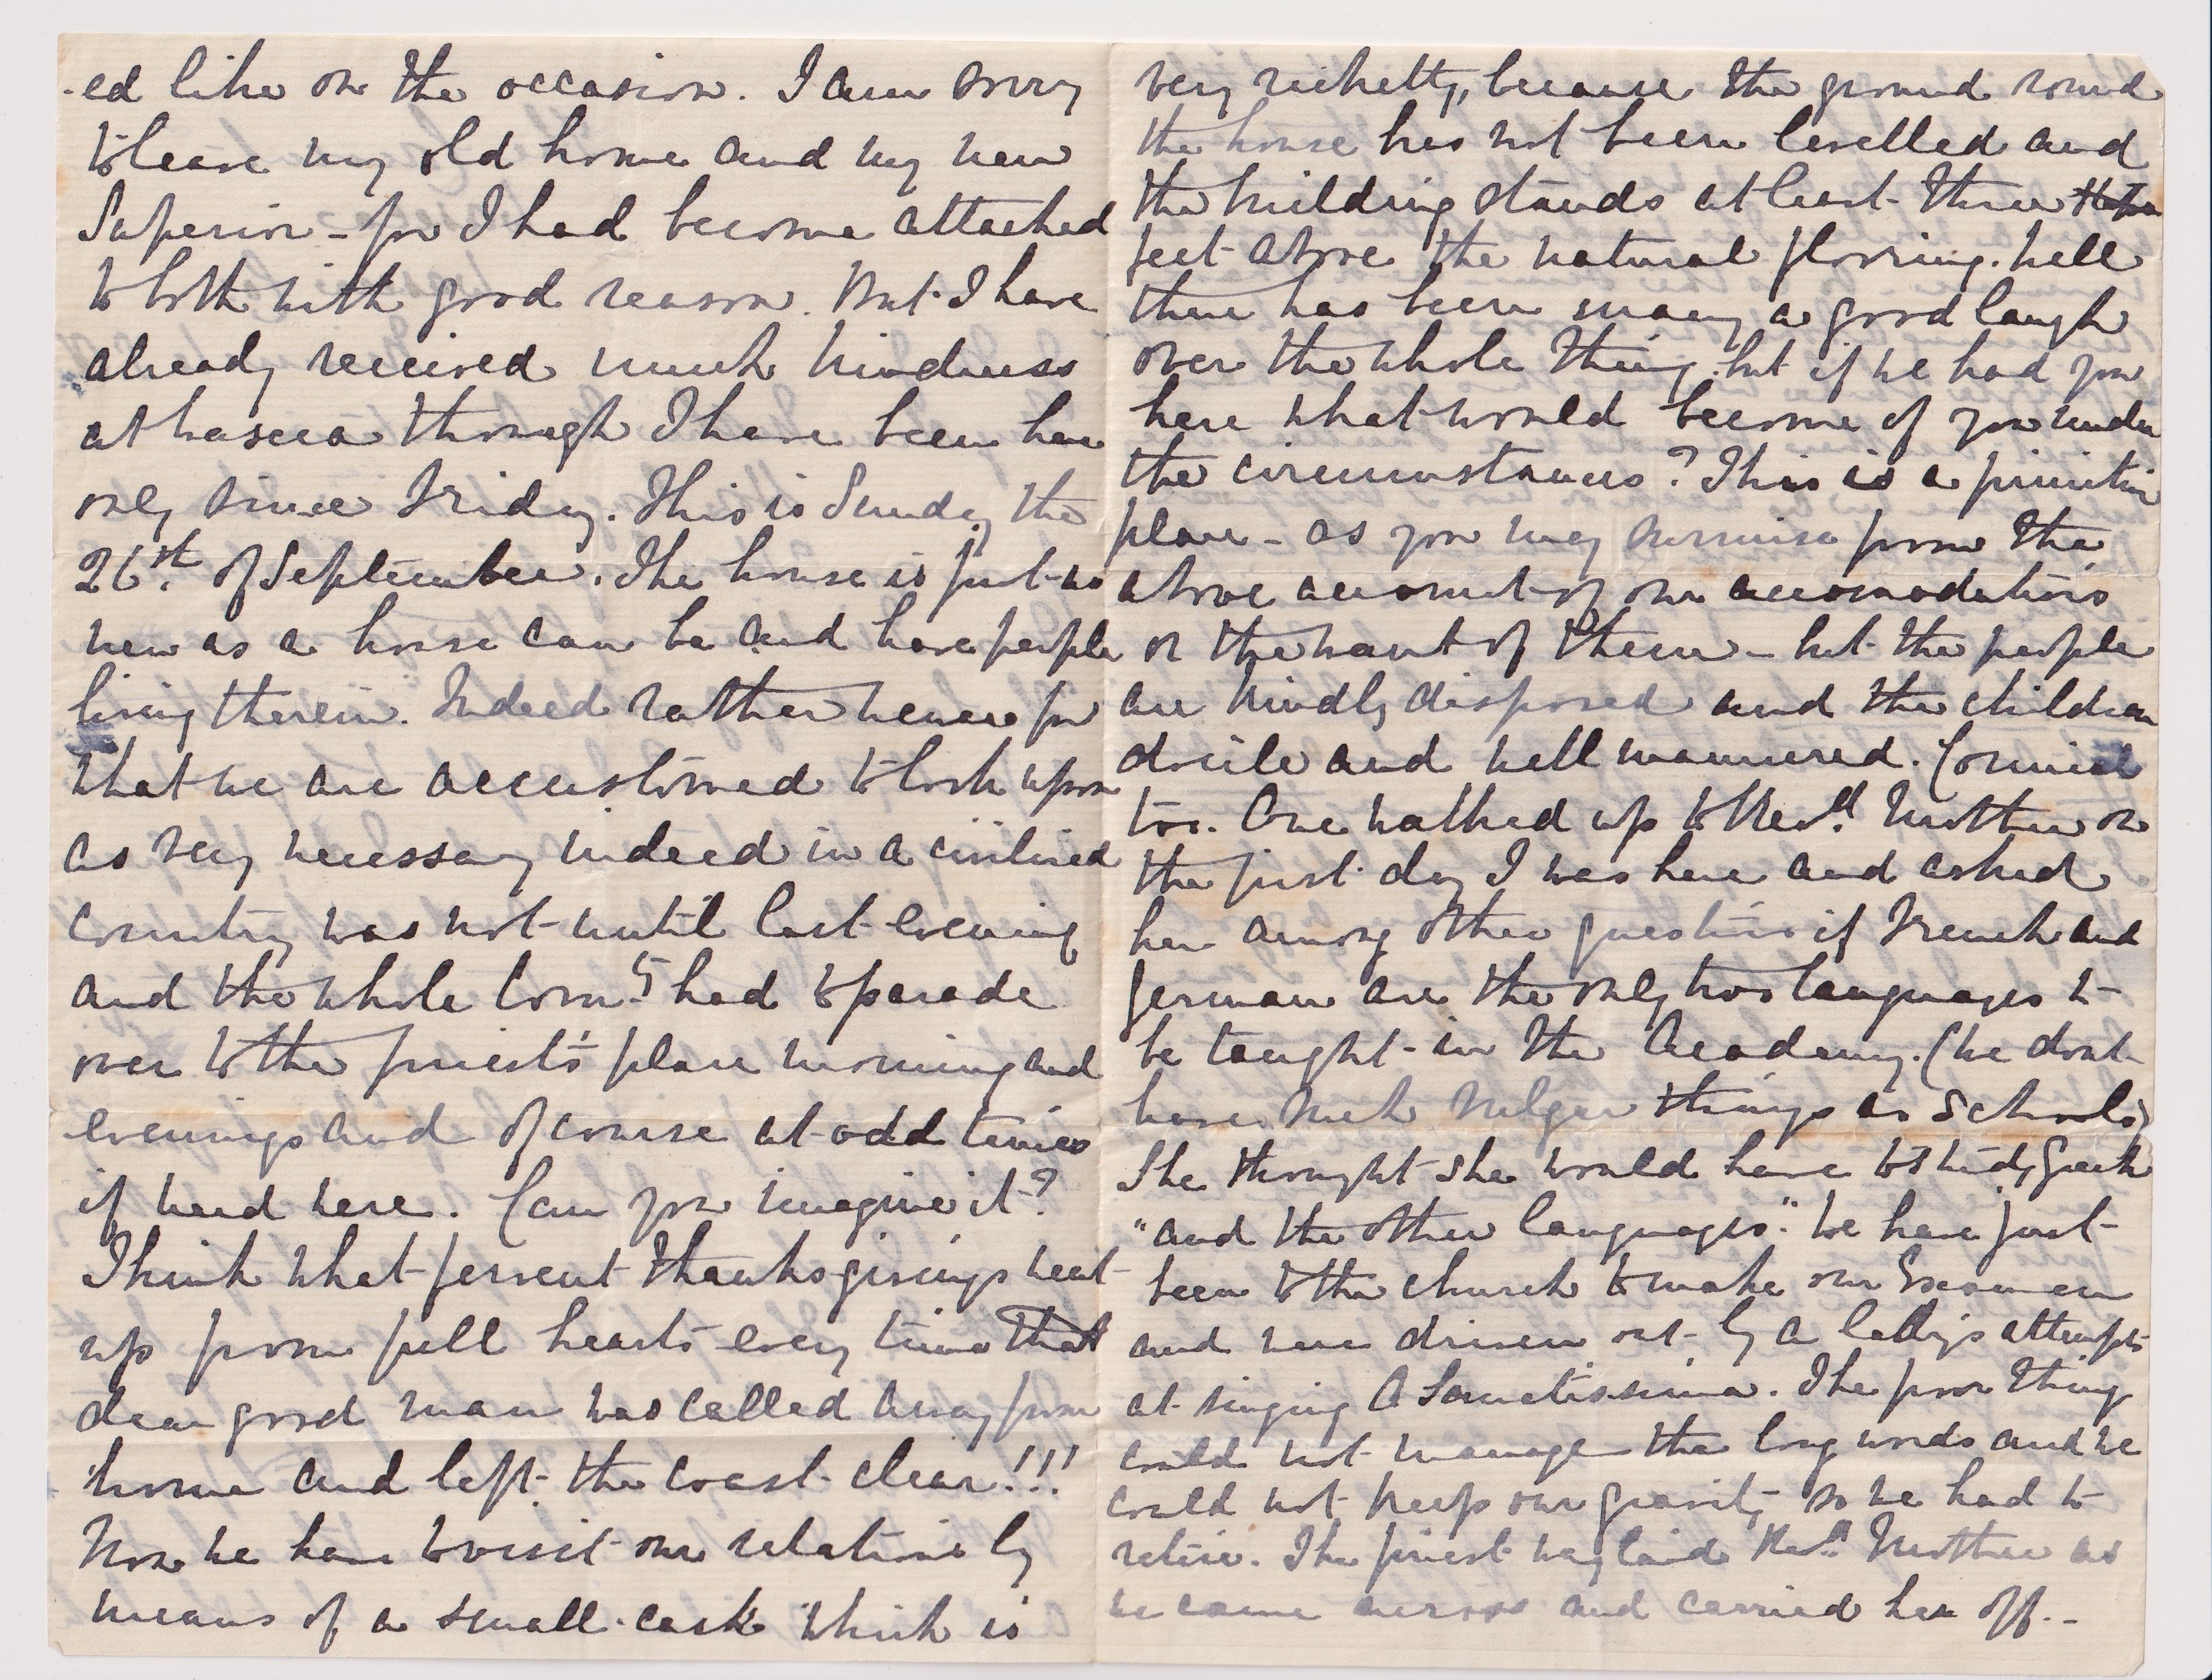 -ed like on the occasion. I am sorry
to leave my old home and my new
Superior - for I had become attached
to both with good reason. But I have
already received much kindness
at Waseca through I have been here
only since Friday. This is Sunday the
26st. of September. The house is just as
new as a house can be and have people
living therein. Indeed rather newer for
what we are accustomed to look upon
as very necessary indeed in a civilized
country was not until last evening
and the whole Com.ty had to parade
over to the priest's place morning and
evenings and of course at odd times
if need were. Can you imagine it?
Think what fervent thanksgivings went
up from full hearts every time that
dear good man was called away from
home and left the coast clear!!!
Now we have to visit our relations by
means of a small cask which is
very ricketty, because the ground round
the house has not been levelled and
the building stands at least three
feet above the natural flooring. Well
there has been many a good laugh
over the whole thing. but if we had you
here what would become of you under
the circumstances? This is a primitive
place - as you may surmise from the
above account of our accomodations
or the want of them - but the people
are kindly disposed and the children
docile and well mannered. Comical
too. One walked up to Revd. Mother on
the first day I was here and asked
her among other questions if French and
German are the only two languages to
be taught in the Academy. (We dont
have such vulgar things as Schools)
She thought she would have to study Greek
"and the other languages". We have just
been to the church to make our Examen
and were driven out by a lady's attempts
at singing O Sanctissima. The poor thing
could not manage the long words and we
could not keep our gravity so we had to
retire. The priest waylaid Revd. Mother as
we came across and carried her off. -